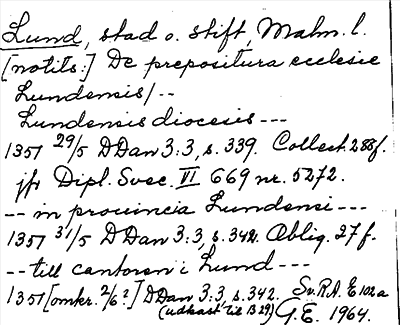 Lund, stad o. stift, Malm. l.
[notits:] De prepositura ecclesie
Lundensis/--
Lundensis diocesis ---
1351 29/5 DDan 3:3, s. 339. Collect. 288f.
jfr Dipl. Svec. VI 669 nr. 5272.
-- in prouincia Lundensi ---
1351 31/5 DDan 3:3, s. 342. Obliq. 27 f.
-- till cantorn i Lund ---
1351 [omkr. 2/6?] DDan 3:3, s. 342. Sv.R.A. E 102a
(udkast til B 29) G.E. 1964.